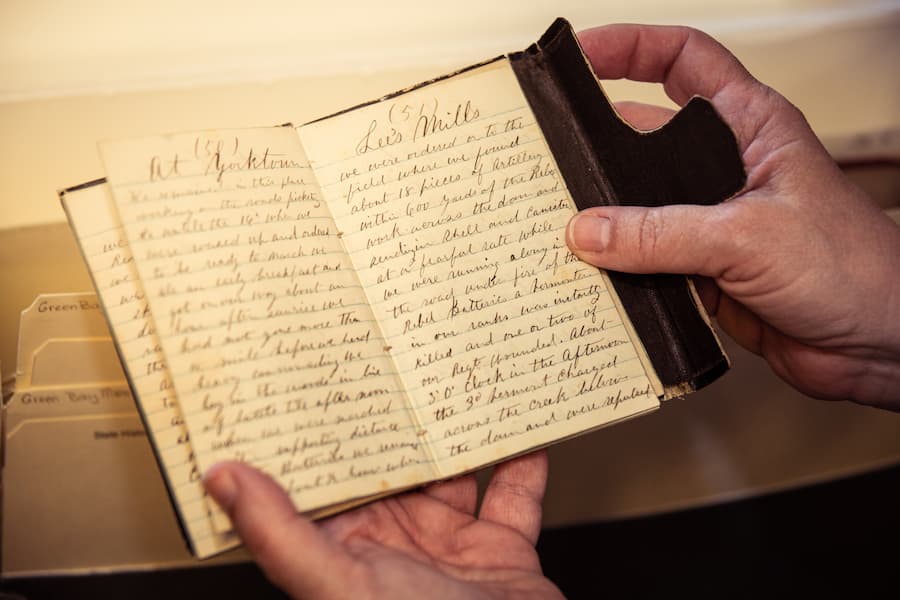 (50)
At Yorktown
We remained in this place
working on the roads picketing
&c untile the 16" when we
were waked up and orders
to be ready to march we
ate an early breakfast and
got on our way about an
hour after sunrise we
had not gone more than
a mile before we herd
heavy cannonading we
lay in the woods in line
of battle till after noon
when we were marched
supporting distance
Batteries we remained
about hour when
(51)
Lee's Mills
we were ordered on to the
field where we found
about 18 pieces of Artillery
within 600 yards of the Rebs
work across the dam and
sending in Shell and Canister
at a fearful rate while
we were running along in
the road under fire of the
Rebel Batteries a Vermonter
in our ranks was instantly
killed and one or two of
our Regt wounded. About
3 "O" Clock in the Afternoon
the 3d Vermont charged
across the creek below
the dam and were repulsed
Green Bay
Green Bay